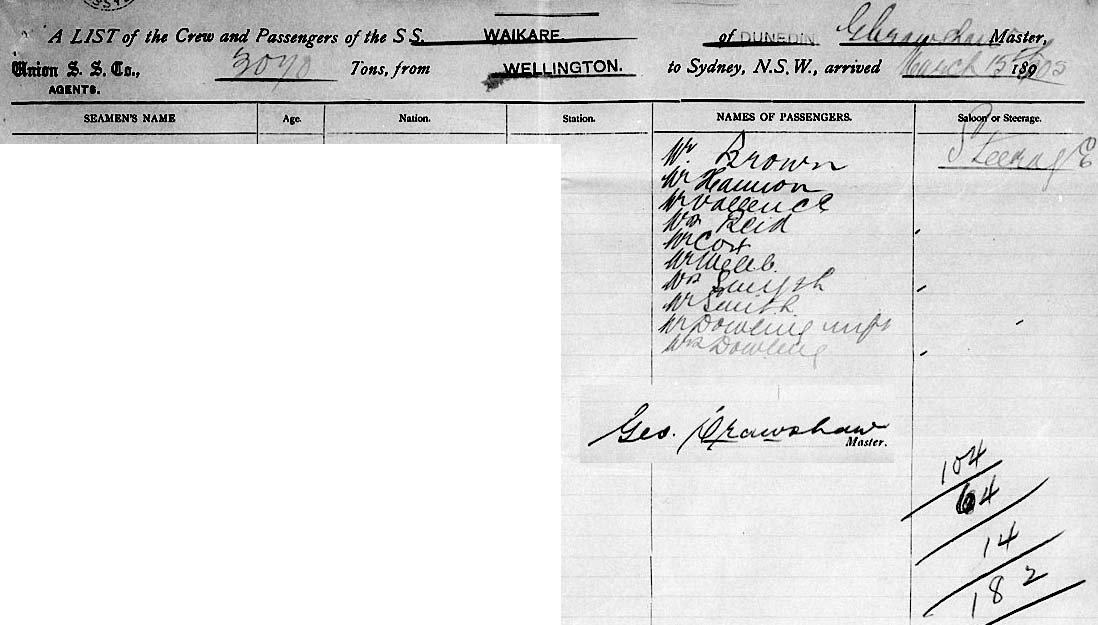 A LIST of the Crew and Passengers of the S S. WAIKARE. of DUNEDIN G Crawshaw Master,
Union S. S. Co., 3070 Tons, from WELLINGTON. to Sydney, N.S.W., arrived March 15 1890
AGENTS.
SEAMEN'S NAME Age. Nation. Station. NAMES OF PASSENGERS. Saloon or Steerage.
Mr Brown Steerage
Mr Hannon
Mr Vallence
Mrs Reid
Mr Cox
Mr Webb
Mrs Smyth
Mr Smith
Mr Dowling
Mrs Dowling
Geo. Crawshaw
Master.
104
64
14
182